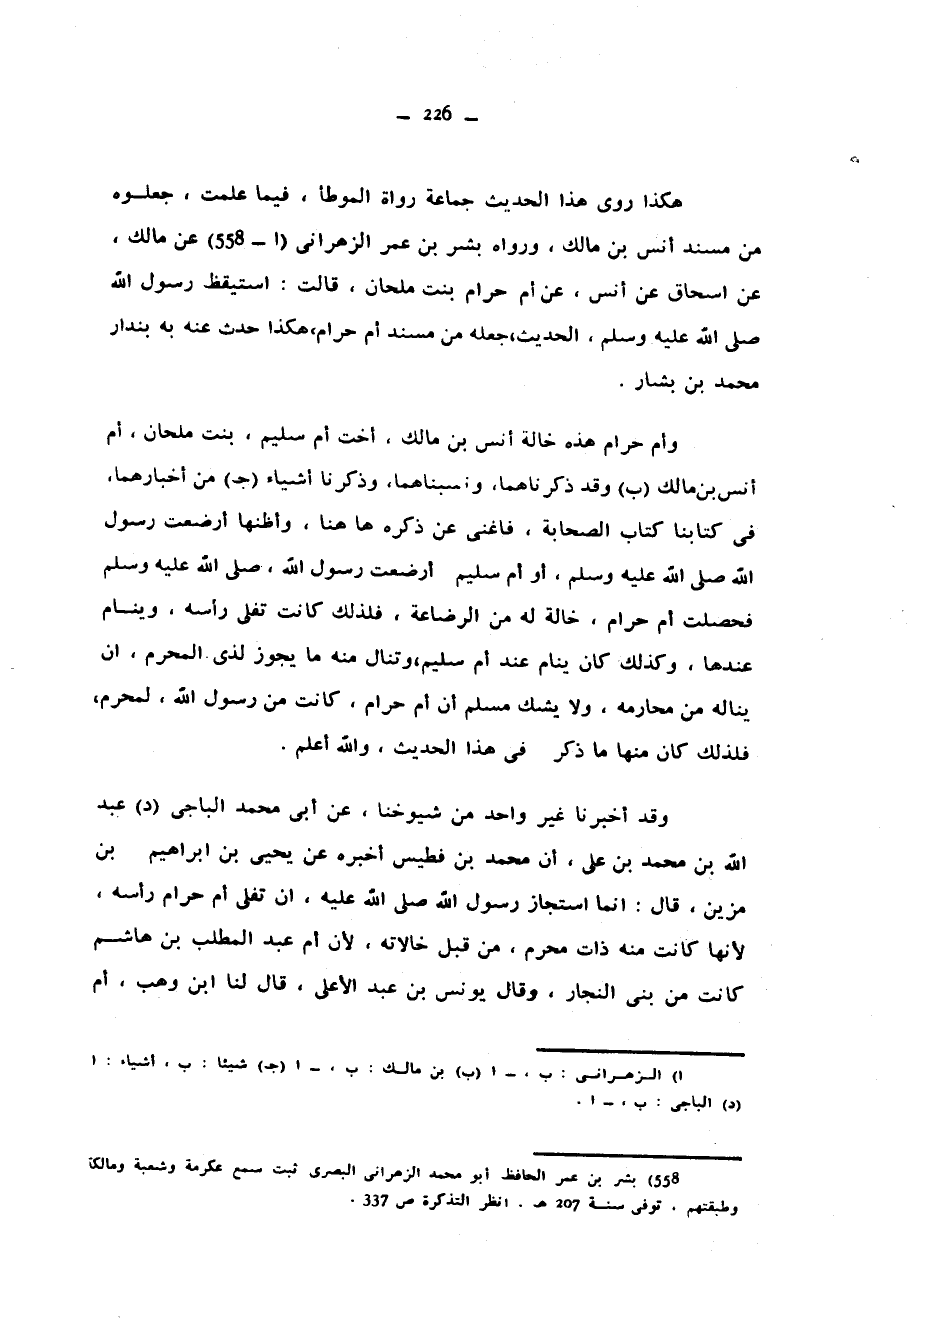 — 226 —
هكذا روى هذا الحديث جماعة رواة الموطأ ، فيما علمت ، جعلـوه
من مسند أنس بن مالك ، ورواه بشر بن عمر الزهرانى (ا — 558) عن مالك ،
عن اسحاق عن أنس ، عن أم حرام بنت ملحان ، قالت : استيقظ رسول الله
صلى الله عليه وسلم ، الحديث،جعله من مسند أم حرام،هكذا حدث عنه به بندار
محمد بن بشار .
وأم حرام هذه خالة أنس بن مالك ، أخت أم سليم ، بنت ملحان ، أم
أنس بن مالك (ب) وقد ذكرناهما، ونسبناهما، وذكرنا أشياء (جـ) من أخبارهما،
فى كتابنا كتاب الصحابة ، فاغنى عن ذكره ها هنا ، وأظنها أرضعت رسول
الله صلى الله عليه وسلم ، أو أم سليم أرضعت رسول الله ، صلى الله عليه وسلم
فحصلت أم حرام ، خالة له من الرضاعة ، فلذلك كانت تفلى رأسه ، وينـام
عندها ، وكذلك كان ينام عند أم سليم،وتنال منه ما يجوز لذى المحرم ، ان
يناله من محارمه ، ولا يشك مسلم أن أم حرام ، كانت من رسول الله ، لمحرم،
فلذلك كان منها ما ذكر فى هذا الحديث ، والله أعلم .
وقد أخبرنا غير واحد من شيوخنا ، عن أبى محمد الباجى (د) عبد
الله بن محمد بن على ، أن محمد بن فطيس أخبره عن يحيى بن ابراهيم بن
مزين ، قال : انما استجاز رسول الله صلى الله عليه ، ان تفلى أم حرام رأسه ،
لأنها كانت منه ذات محرم ، من قبل خالاته ، لأن أم عبد المطلب بن هاشـم
كانت من بنى النجار ، وقال يونس بن عبد الأعلى ، قال لنا ابن وهب ، أم
ا) الـزهـرانـى : ب ، — ا (ب) بن مالـك : ب ، — ا (جـ) شيئا : ب ، أشياء : ا
(د) الباجى : ب ، — ا .
558) بشر بن عمر الحافظ أبو محمد الزهرانى البصرى ثبت سمع عكرمة وشعبة ومالكا
وطبقتهم . توفى سنـة 207 هـ . انظر التذكرة ص 337 .